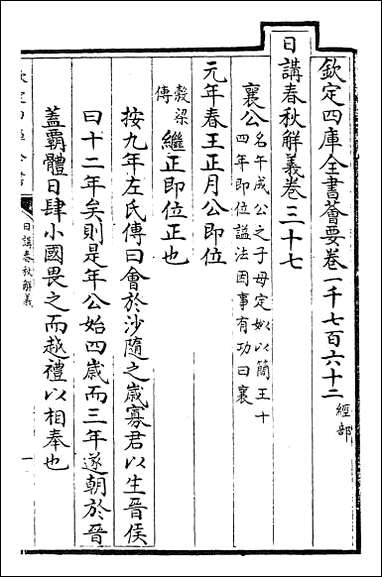 欽定四庫全書薈要卷一千七百六十二 經部
日講春秋解義卷三十七
襄公 名午成公之子母定姒以簡王十
四年即位諡法因事有功曰襄
元年春王正月公即位
穀梁
傳 繼正即位正也
按九年左氏傳曰會於沙隨之歲寡君以生晉侯
曰十二年矣則是年公始四歲而三年遂朝於晉
蓋霸體日肆小國畏之而越禮以相奉也
日講春秋解義
一